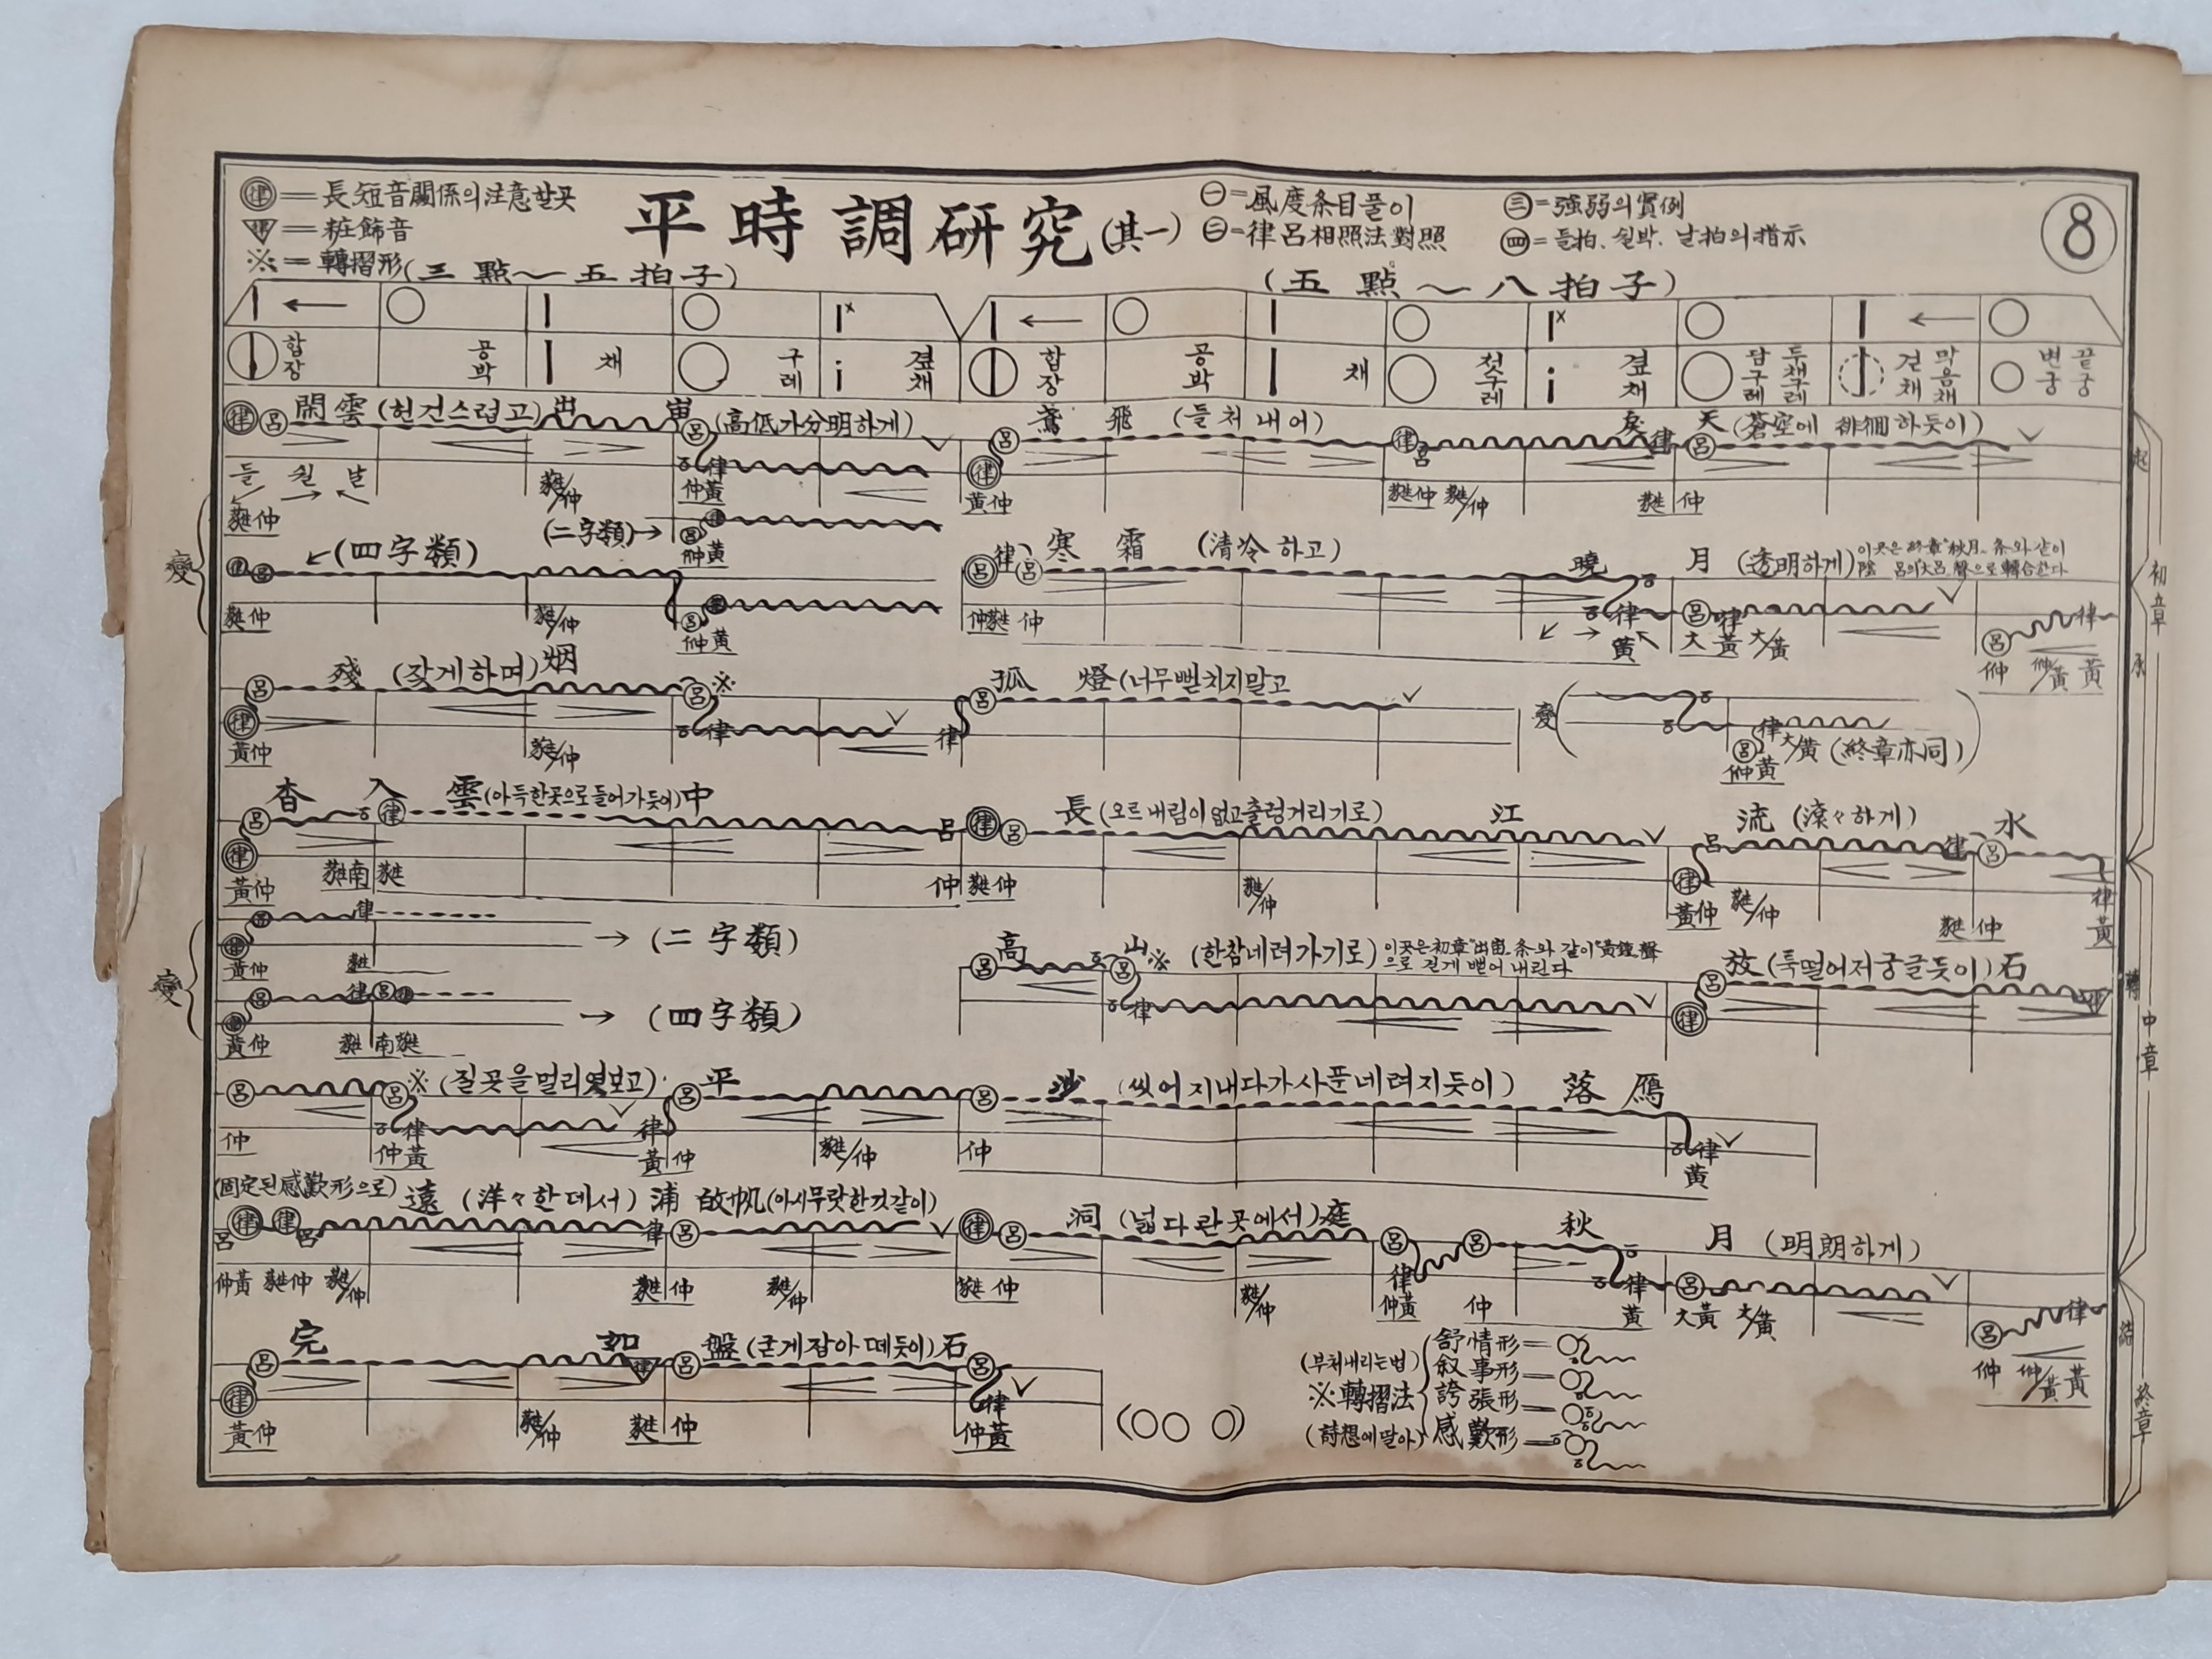 律 = 長短音關係의 注意할곳
平時調研究 (其一)
一 = 風度条目풀이
三 = 強弱의 實例
8
= 粧飾音
二 = 律呂相照法對照
四 = 들拍、쉴박、날拍의 指示
※ = 轉摺形
(三點~五拍子)
(五點~八拍子)
합장 공박 채 구레 곁채 합장 공박 채 첫구레 곁채 담구레 두채구레 걷채 막음채 변궁 끝궁
律 呂 閑雲 (헌건스럽고) 出 宙 呂 (高低가 分明하게) 鳶 飛 (들처내어) 戾 天 (蒼空에 徘徊하듯이)
들 쉴 날
蕤仲 蕤/仲 仲黃 黃仲 蕤仲 蕤/仲 蕤仲
(二字類)→ 仲黃
變 (四字類) 呂 律 呂 寒 霜 (清冷하고) 曉 月 (透明하게) 이곳은 終章"秋月"条와 같이
陰 呂의 大呂聲으로 轉合한다
蕤仲 蕤/仲 仲黃 仲蕤仲 黃 大黃 大/黃 仲 仲/黃 黃
殘 (잦게하며) 烟 ※ 孤 燈 (너무뻗치지말고 變
黃仲 蕤/仲 律 仲黃 大/黃 (終章亦同)
杳 入 雲 (아득한곳으로들어가듯이) 中 長 (오르내림이없고출렁거리기로) 江 流 (滾々하게) 水
黃仲 蕤南蕤 仲 蕤仲 蕤/仲 黃仲 蕤/仲 蕤仲 黃
變 → (二字類)
黃仲 蕤
高 山※ (한참네려가기로) 이곳은 初章"出宙"条와 같이 "黃鐘"聲
으로 길게 뻗어 내린다
放 (툭떨어저궁글듯이) 石
→ (四字類)
黃仲 蕤南蕤
※ (질곳을멀리엿보고) 平 沙 (씻어지내다가사푼네려지듯이) 落 鴈
仲 仲黃 黃仲 蕤/仲 仲 黃
(固定된感歎形으로) 遠 (洋々한데서) 浦 啟帆 (아시무랏한것같이) 洞 (넓다란곳에서) 庭 秋 月 (明朗하게)
仲黃 蕤仲 蕤/仲 蕤仲 蕤/仲 蕤仲 蕤/仲 仲黃 仲 黃 大黃 大/黃 仲 仲/黃 黃
完 如 盤 (굳게잡아떼듯이) 石
黃仲 蕤/仲 蕤仲 仲黃
(○○ ○)
(부처내리는법)
※轉摺法
(詩想에딸아)
舒情形 =
叙事形 =
誇張形 =
感歎形 =
起
初章
承
轉
中章
結
終章